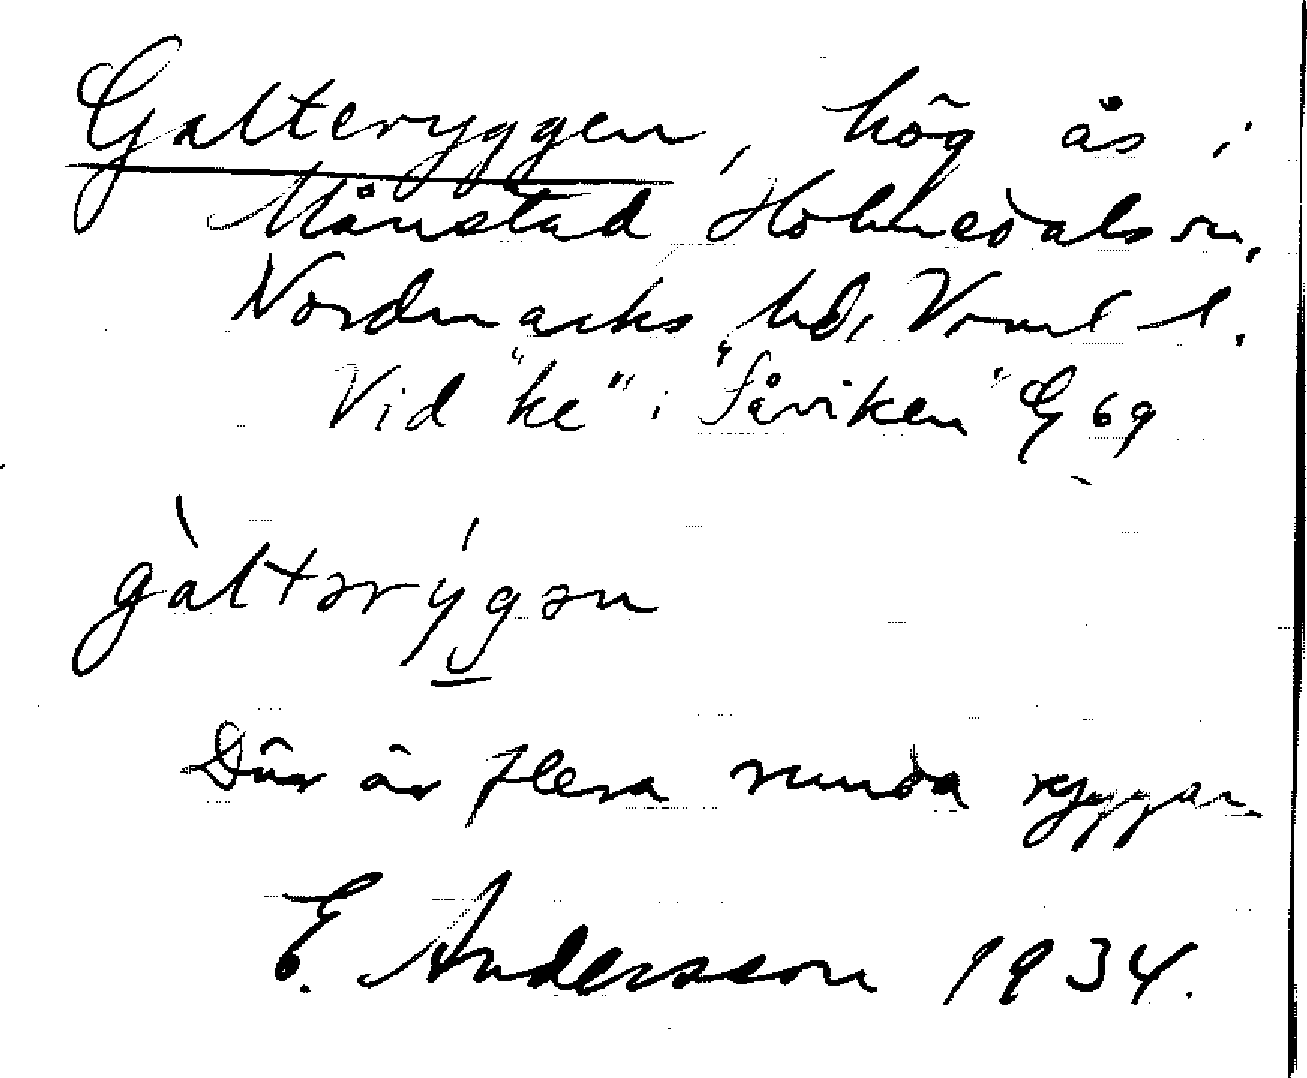 Galteryggen, hög ås i
Månstad Holmedals sn.
Nordmarks hd, Vrml l.
Vid "ke" i "Fåviken" G 69
gàltərýgən
Där är flera runda ryggar.
E. Andersson 1934.